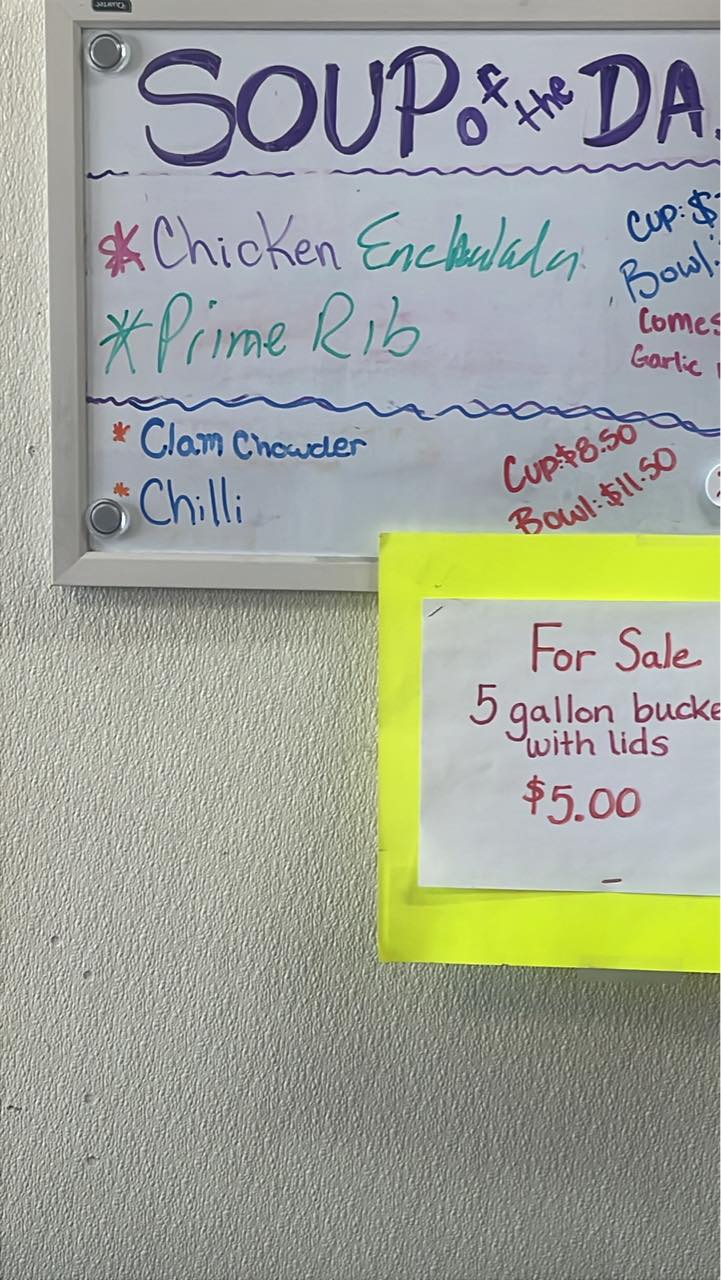 SOUP of the DA
* Chicken Enchulada
* Prime Rib
Cup: $
Bowl:
Comes
Garlic
* Clam Chowder
* Chilli
Cup: $8.50
Bowl: $11.50
For Sale
5 gallon bucke
with lids
$5.00